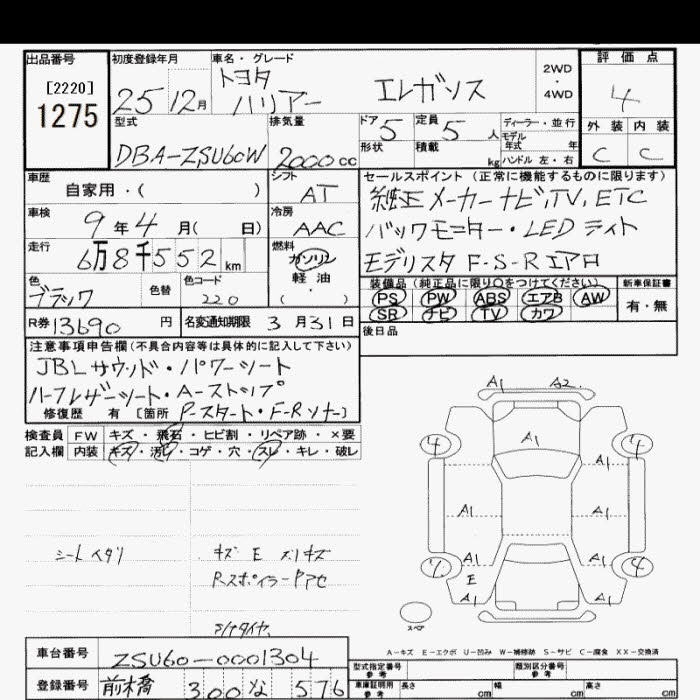 出品番号
[2220]
1275
初度登録年月
25 12月
車名・グレード
トヨタ
ハリアー
エレガンス
2WD
・
4WD
評価点
4
外装 内装
C C
型式
DBA-ZSU60W
排気量
2000cc
ドア 5
形状
定員 5 人
積載 kg
ディーラー・並行
モデル
年式 年
ハンドル 左・右
車歴
自家用・( )
シフト
AT
車検
9年4月( 日)
冷房
AAC
走行
6万8千552km
燃料
ガソリン
軽油
( ・ )
色
ブラック
色替
色コード
220
R券 13690 円
名変通知期限 3月31日
セールスポイント (正常に機能するものに限ります)
純正メーカーナビ,TV,ETC
バックモニター・LEDライト
モデリスタF-S-Rエアロ
装備品 (純正品に限り○をつけてください)
PS PW ABS エアB AW
SR ナビ TV カワ
新車保証書
有・無
後日品
注意事項申告欄(不具合内容等は具体的に記入して下さい)
JBLサウンド・パワーシート
ハーフレザーシート・A-ストップ
修復歴 有 [箇所 P-スタート・F-Rソナー]
検査員 FW キズ・飛石・ヒビ割・リペア跡・×要
記入欄 内装 キズ・汚れ・コゲ・穴・スレ・キレ・破レ
シートイタリ
キズ E スリキズ
Rスポイラー
A1 A2
A1
4 4
A1 A1 A1
A1 A1
E
A1 A1
4
スペア
A-キズ E-エクボ U-凹み W-補修跡 S-サビ C-腐食 XX-交換済
車台番号 ZSU60-0001304
登録番号 前橋 300 576
型式指定番号
参考
類別区分番号
参考
車庫証明用
参考
長さ cm 幅 cm 高さ cm